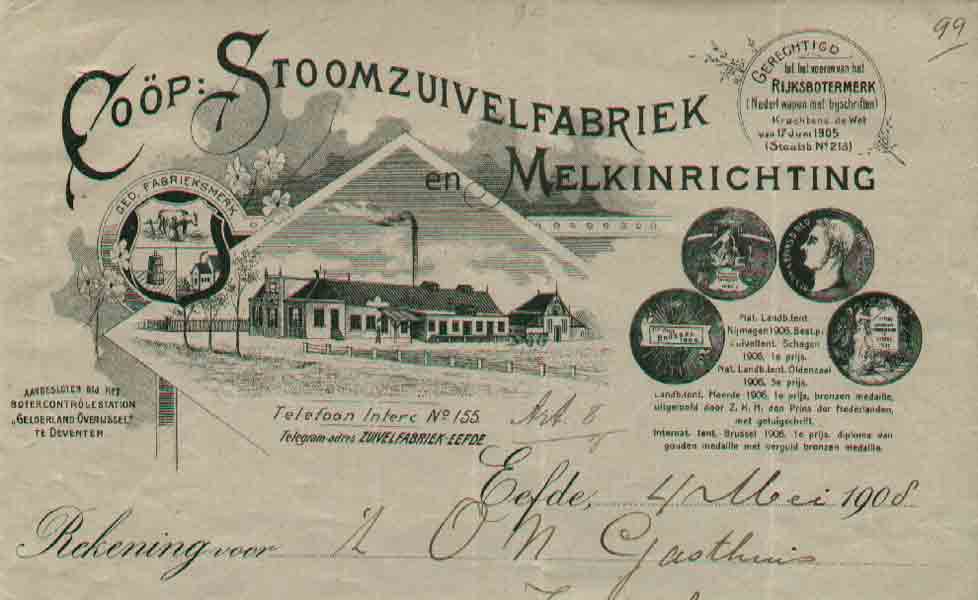 99
COÖP: STOOMZUIVELFABRIEK
en MELKINRICHTING
GERECHTIGD
tot het voeren van het
RIJKSBOTERMERK
(Nederl wapen met bijschriften)
Krachtens de Wet
van 17 Juni 1905
(Staatsb Nº 213)
GED. FABRIEKSMERK
AANGESLOTEN BIJ HET
BOTERCONTRÔLESTATION
„GELDERLAND OVERIJSSEL"
TE DEVENTER
Telefoon Interc Nº 155
Telegram-adres ZUIVELFABRIEK-EEFDE
Art. 8
Nat. Landb.tent.
Nijmegen 1906. Best.p.
Zuiveltent. Schagen
1906, 1e prijs.
Nat. Landb.tent. Oldenzaal
1906, 3e prijs.
Landb.tent. Heerde 1906, 1e prijs, bronzen medaille,
uitgeloofd door Z. K. H. den Prins der Nederlanden,
met getuigschrift.
Internat. tent. Brussel 1906, 1e prijs, diploma van
gouden medaille met verguld bronzen medaille.
Eefde, 4 Mei 1908.
Rekening voor 't O N Gasthuis